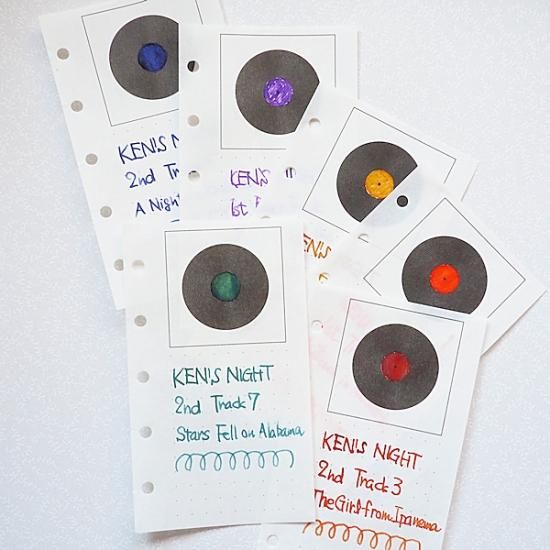 KEN'S NIGHT
2nd Tra
A Nigh
KEN'S
1st
EN'S
KEN'S NIGHT
2nd Track 7
Stars Fell on Alabama
KEN'S NIGHT
2nd Track 3
The Girl from Ipanema